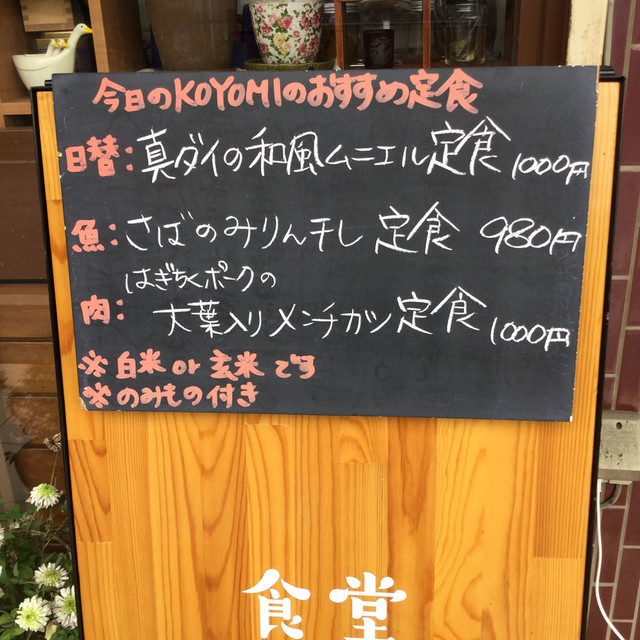 今日のKOYOMIのおすすめ定食
日替：真ダイの和風ムニエル定食 1000円
魚：さばのみりん干し 定食 980円
はぎちくポークの
肉：大葉入りメンチカツ定食 1000円
※白米 or 玄米です
※のみもの付き
食堂